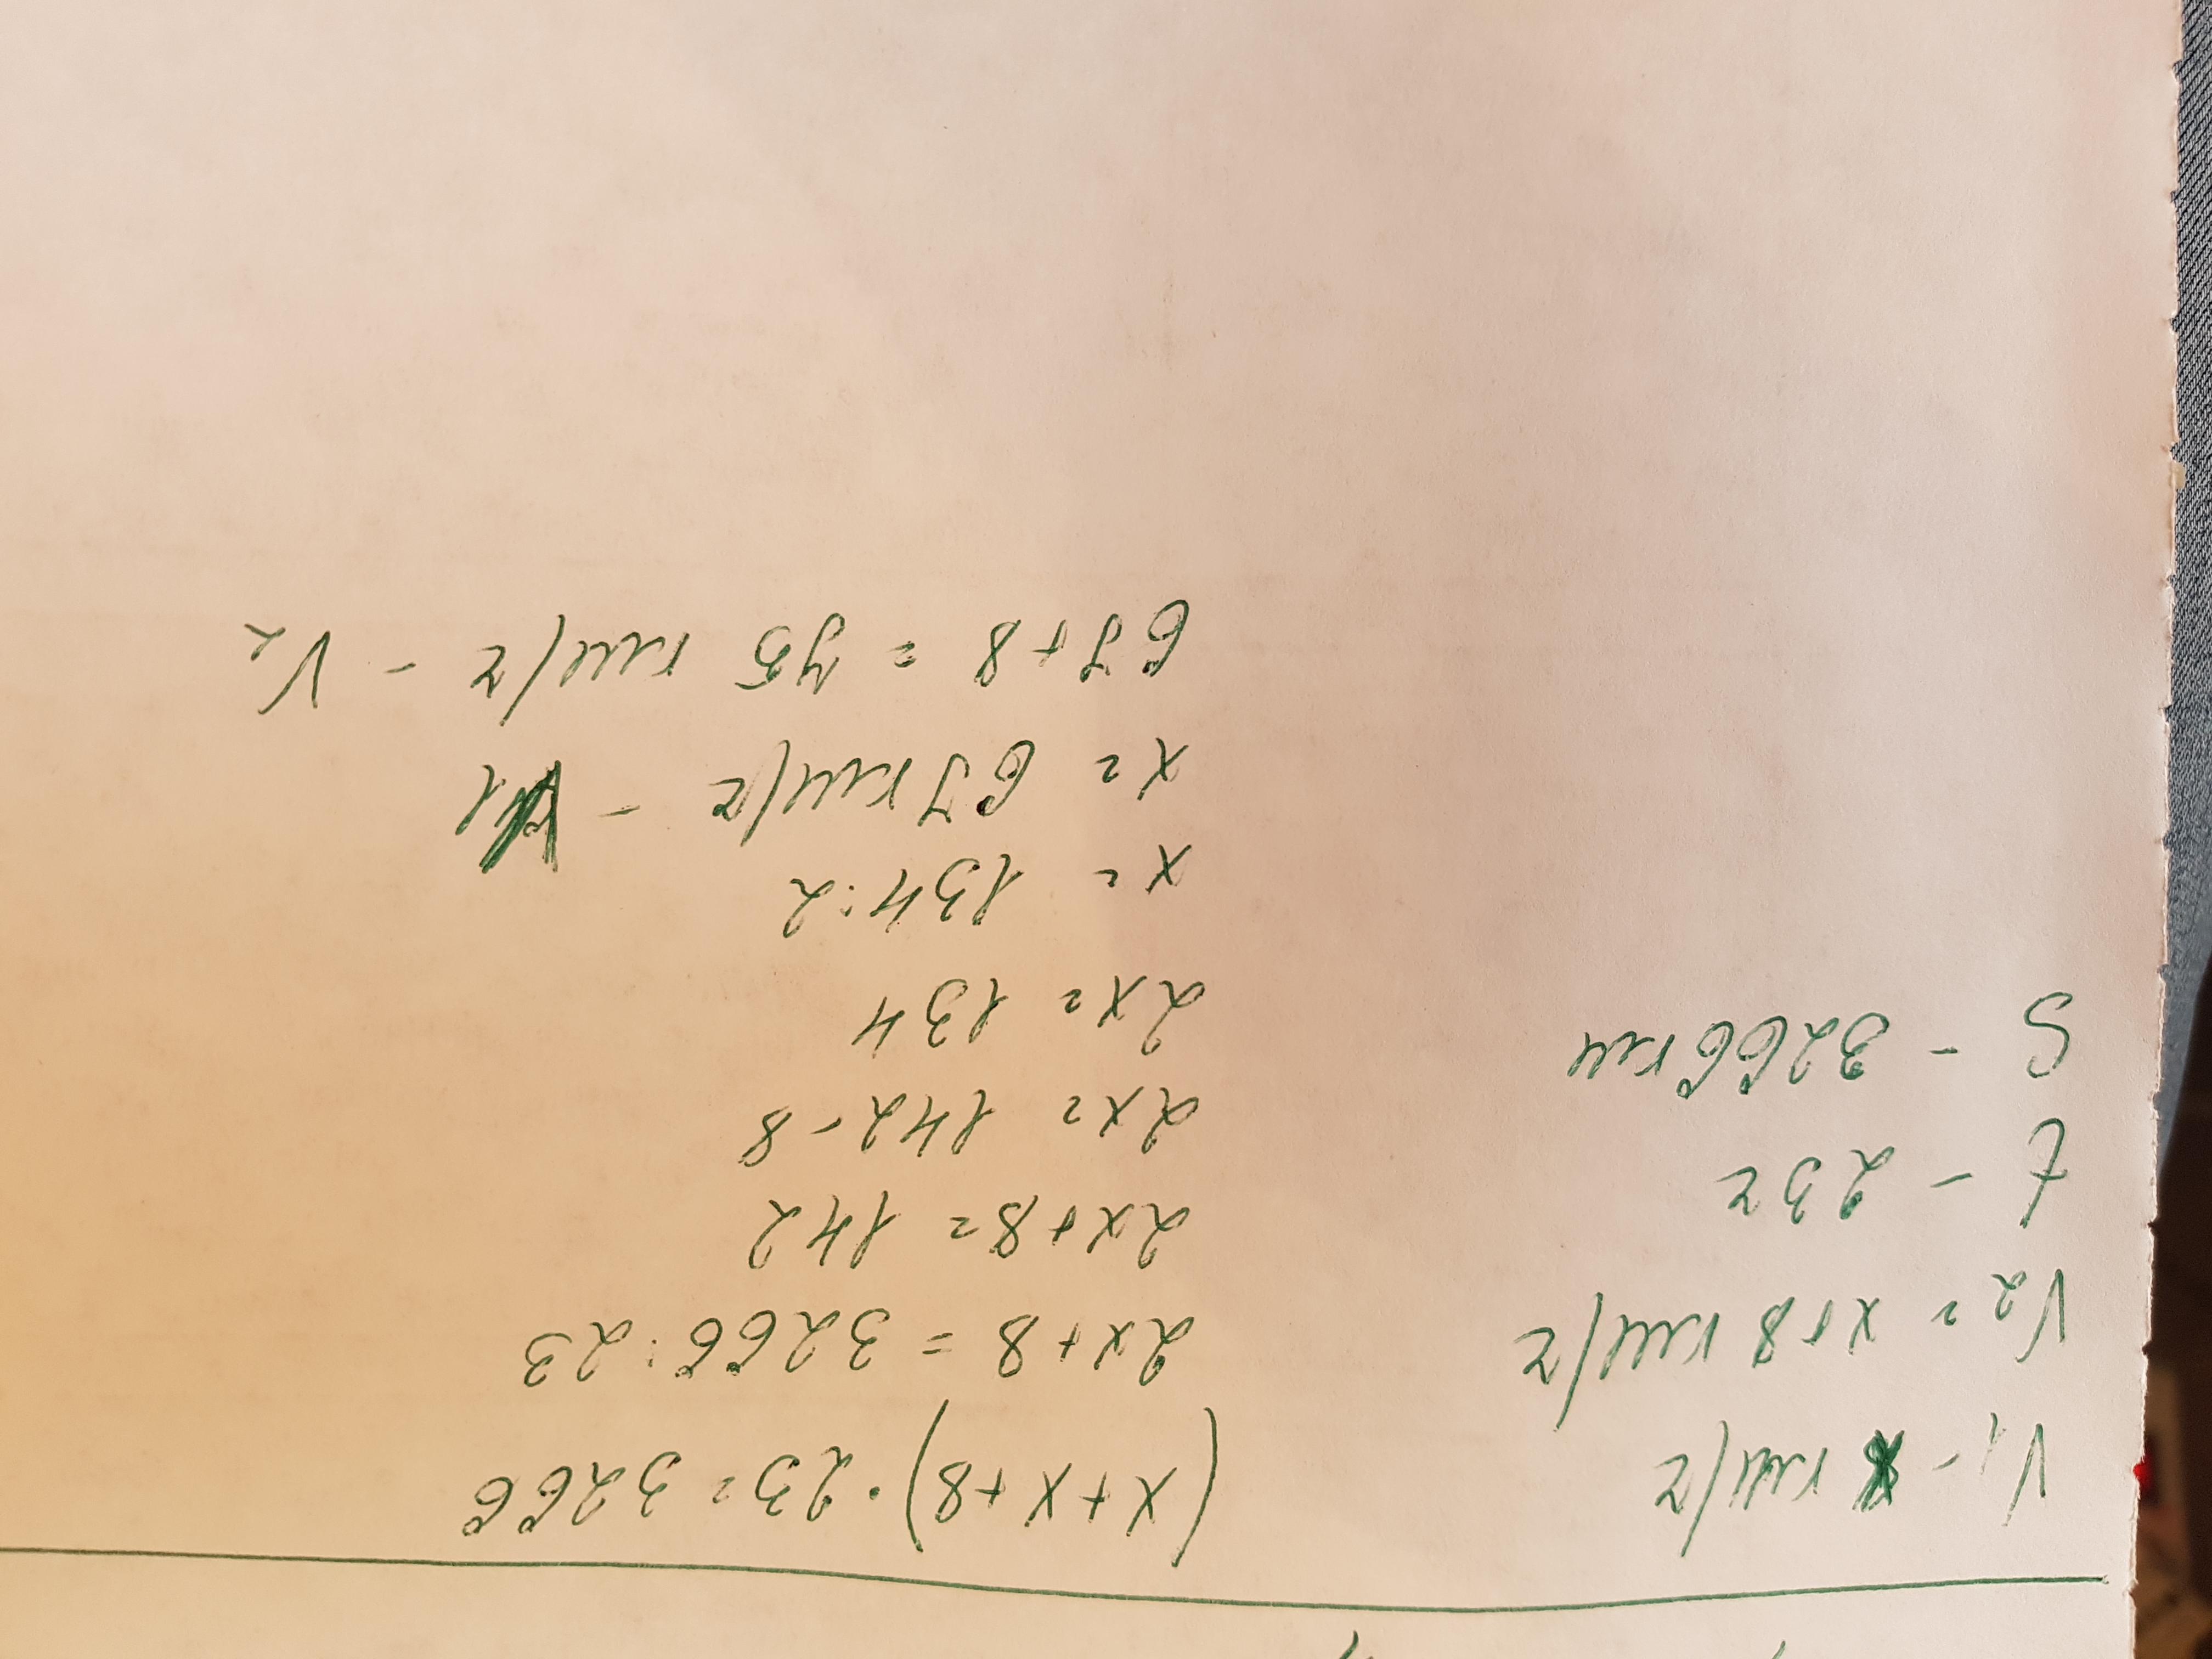 V₁ - x км/г
V₂ = x+8 км/г
t - 23г
S - 3266км
(x+x+8)·23=3266
2x+8 = 3266:23
2x+8=142
2x=142-8
2x=134
x=134:2
x=67км/г - V1
67+8=75 км/г - V₂